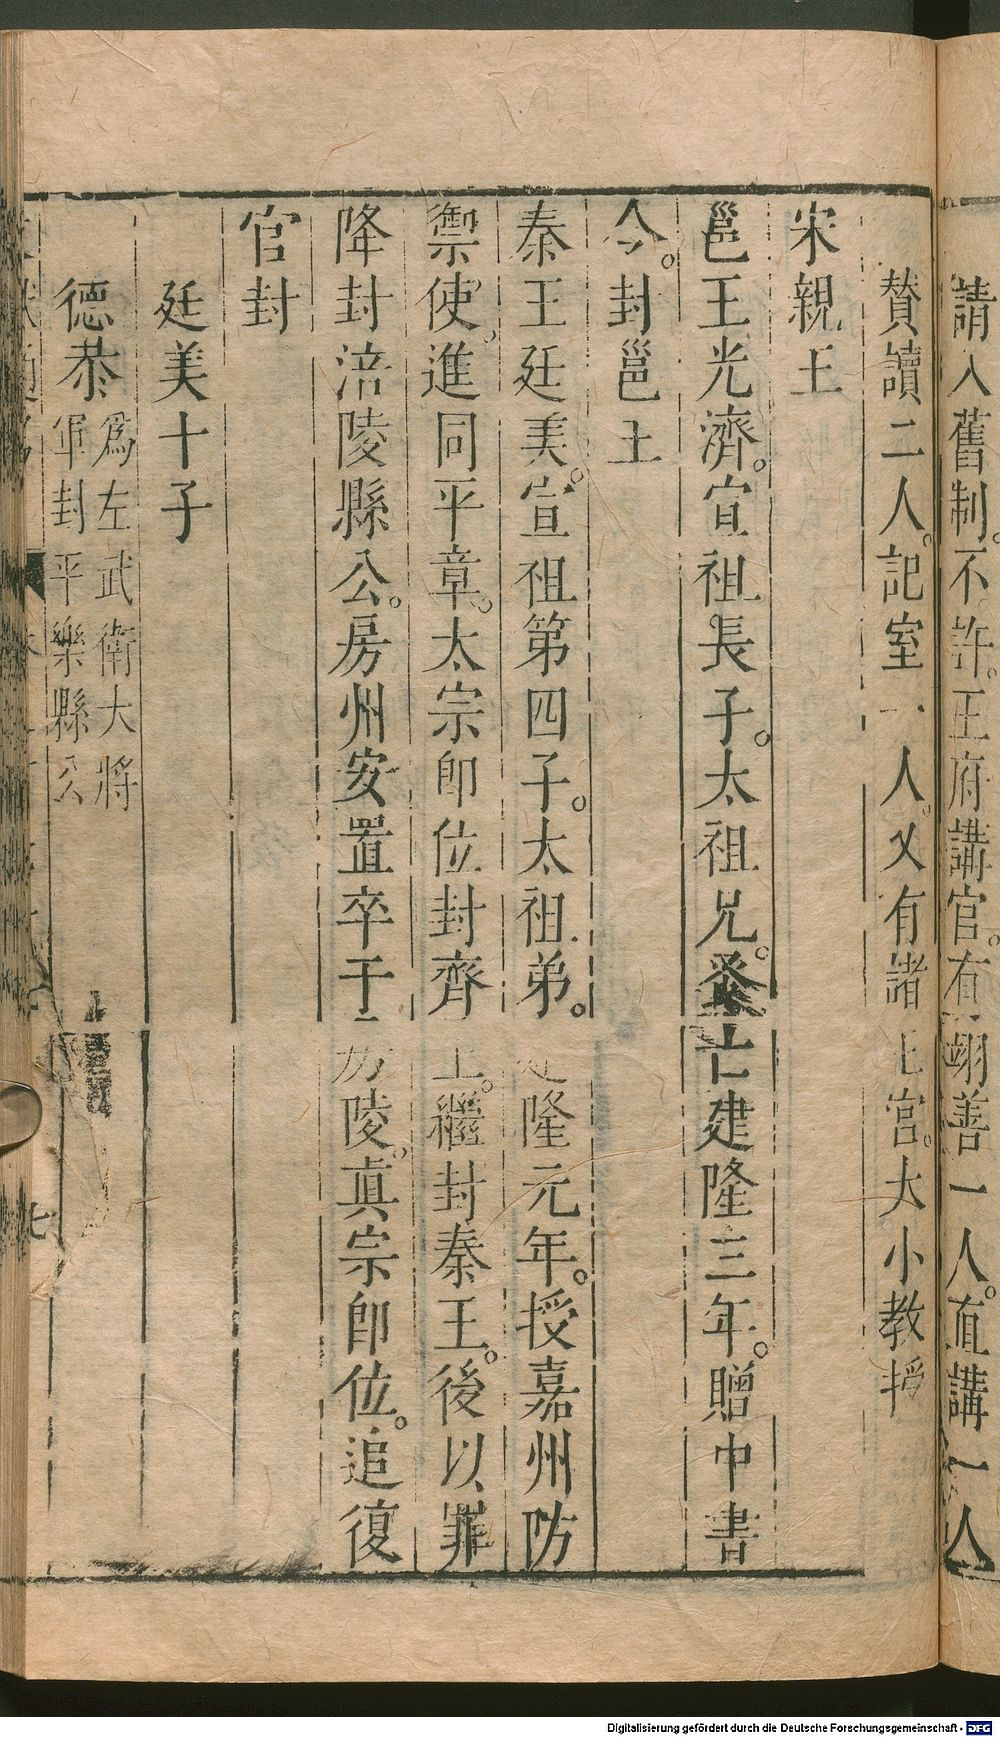 請入舊制。不許。王府講官。有翊善一人。直講一人
贊讀二人。記室一人。又有諸王宮。大小教授
宋親王
邕王光濟。宣祖長子。太祖兄。蚤亡建隆三年。贈中書
令。封邕王
秦王廷美。宣祖第四子。太祖弟。建隆元年。授嘉州防
禦使，進同平章。太宗即位封齊王。繼封秦王。後以罪
降封涪陵縣公。房州安置卒于房陵。真宗即位。追復
官封
廷美十子
德恭為左武衛大將
軍封平樂縣公
七
Digitalisierung gefördert durch die Deutsche Forschungsgemeinschaft - DFG